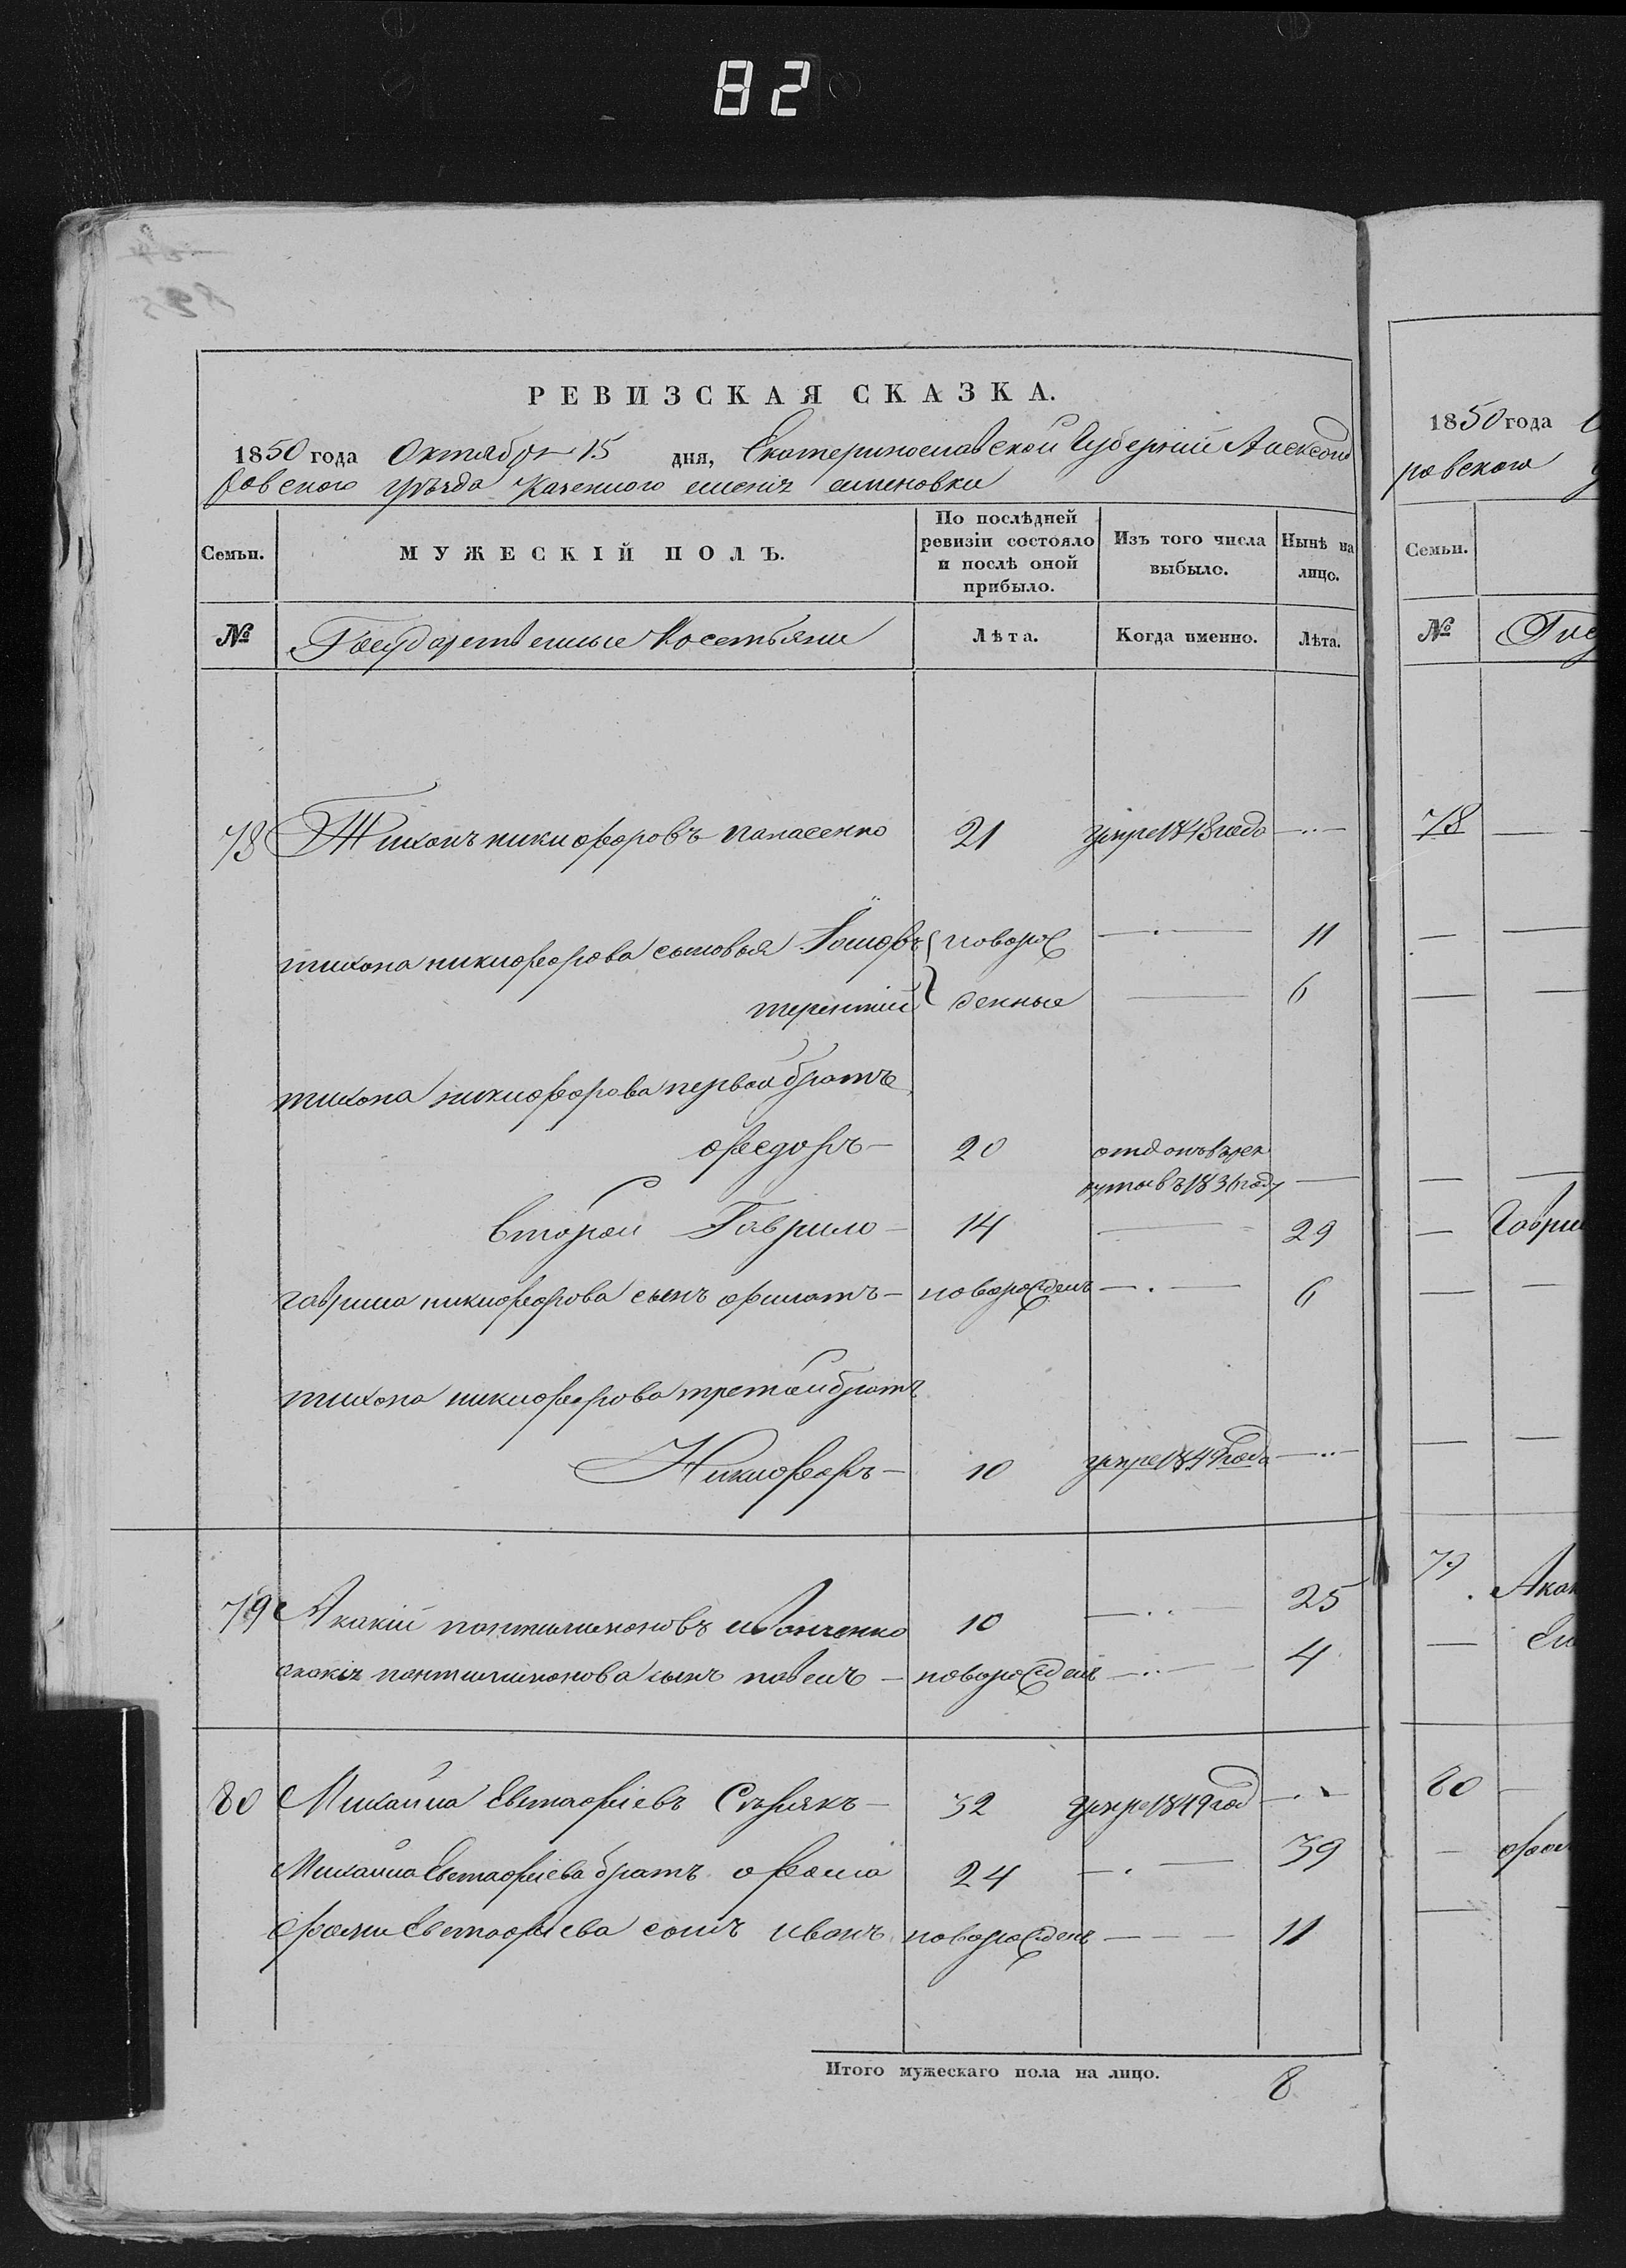 82
РЕВИЗСКАЯ СКАЗКА.
1850 года Октября 15 дня, Екатеринославской Губерніи Александ
ровского уѣзда Казенного именія
Семьи.
МУЖЕСКІЙ ПОЛЪ.
По послѣдней ревизіи состояло и послѣ оной прибыло.
Изъ того числа выбыло.
Нынѣ на лицо.
№
Государственные
Лѣта.
Когда именно.
Лѣта.
78 Тихонъ никифоровъ панасенко 21 умре 1848 года
тихона никифорова сыновья новорож 11
терентий денные 6
тихона никифорова первой братъ
федоръ 20 отданъ в рек
руты въ 1836 году
второй Гаврило 14 29
гаврила никифорова сынъ филатъ новорожденъ 6
тихона никифорова третой братъ
Никифоръ 10 умре 1849 года
79 Акакій пантилимоновъ 10 25
акакія пантилимонова сынъ павелъ новорожденъ 4
80 Михайла Евстафіевъ 32 умре 1849 год
Михайла Евстафіева братъ фома 24 39
фомы Евстафіева сынъ иванъ новорожденъ 11
Итого мужескаго пола на лицо. 8
1850 года
ровского
Семьи.
№
78
79
80